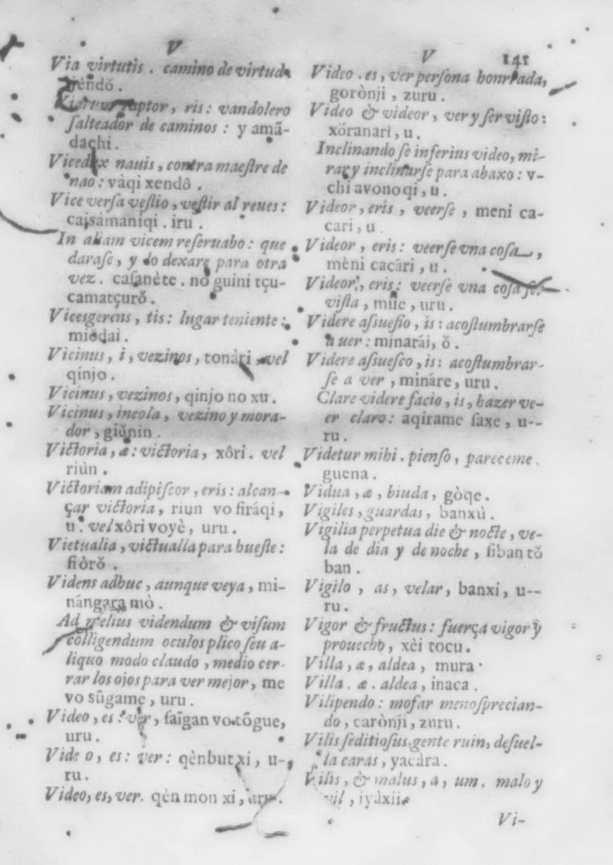 V
Via virtutis . camino de virtud.
Viarum raptor, ris: vandolero
salteador de caminos : y amã-
dachi.
Vicedux nauis, contra maestre de
nao : vàqi xendô.
Vice versa vestio, vestir al reues:
caisamaniqi . iru.
In aliam vicem reseruabo: que
darase, y lo dexare para otra
vez. casanète. no guini tçu-
camatçurŏ.
Vicesgerens, tis: lugar teniente:
miŏdai.
Vicinus, i, vezinos, tonàri, vel
qinjo.
Vicinus, vezinos, qinjo no xu.
Vicinus, incola, vezino y mora-
dor, giŭnin.
Victoria, æ: victoria, xôri. vel
riùn.
Victoriam adipiscor, eris: alcan-
çar victoria, riun vo firáqi,
u. vel xôri voyè, uru.
Vietualia, victualla para hueste:
fiòrŏ.
Videns adhuc, aunque veya, mi-
nángara mò.
Ad melius videndum & visum
colligendum oculos plico seu a-
liquo modo claudo, medio cer-
rar los ojos para ver mejor, me
vo sŭgame, uru.
Video, es: ver, faĩgan vo tŏgue,
uru.
Video, es: ver: qènbut xi, u-
ru.
Video, es, ver. qèn mon xi, uru.
V 141
Video. es, ver persona honrrada,
goronji, zuru.
Video & videor, ver y ser visto:
xŏranari, u.
Inclinando se inferius video, mi-
rar y inclinarse para abaxo: v-
chi avonoqi, u.
Videor, eris, veerse, meni ca-
cari, u.
Videor, eris: veerse vna cosa,
mèni cacàri, u.
Videor, eris: veerse vna cosa
vista, miie, uru.
Videre assuesio, is: acostumbrarse
a uer: minarái, ŏ.
Videre assuesco, is: acostumbrar-
se a ver, mináre, uru.
Clare videre facio, is, hazer ve-
er claro: aqirame saxe, u--
ru.
Videtur mihi. pienso, pareceme.
guena.
Vidua, æ, biuda, gòqe.
Vigiles, guardas, banxù.
Vigilia perpetua die & nocte, ve-
la de dia y de noche, fiban tŏ
ban.
Vigilo, as, velar, banxi, u--
ru.
Vigor & fructus: fuerça vigor y
prouecho, xèi tocu.
Villa, æ, aldea, mura.
Villa. æ. aldea, inaca.
Vilipendo: mofar menosprecian-
do, carònji, zuru.
Vilis seditiosus, gente ruin, desuel-
la caras, yacára.
Vilis, & malus, a, um. malo y
vil, iyàxii.
Vi-